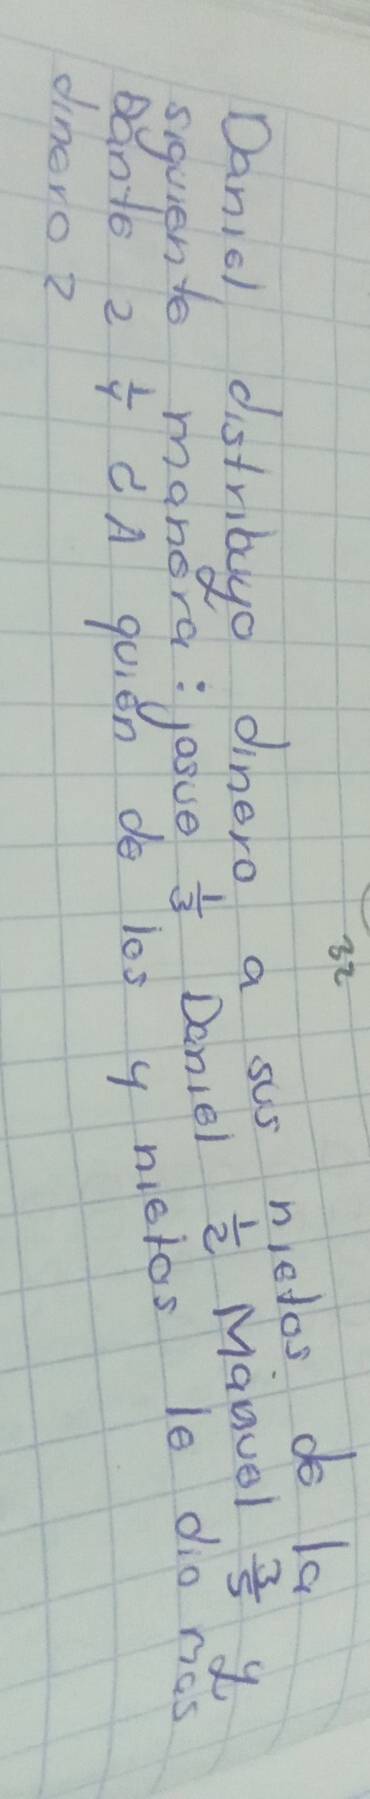 32
Daniel distribuyo dinero a sus nietos de la
siguiente manera: josue 1/3 Daniel 1/2 Manuel 3/5 y
Dante 2 1/4 ¿A quién de los 4 nietos le dio mas
dinero?